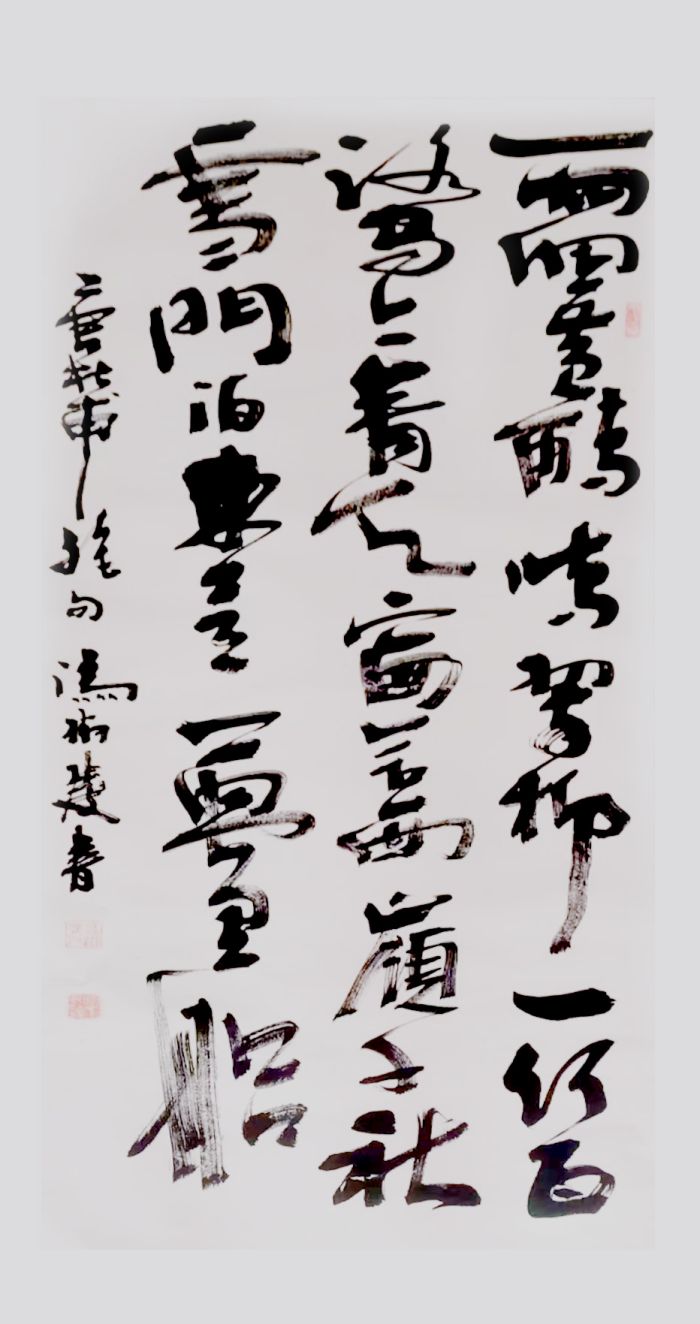 兩個黃鸝鳴翠柳一行白
鷺上青天窗含西嶺千秋
雪門泊東吳萬里船
杜甫絕句馮樹書